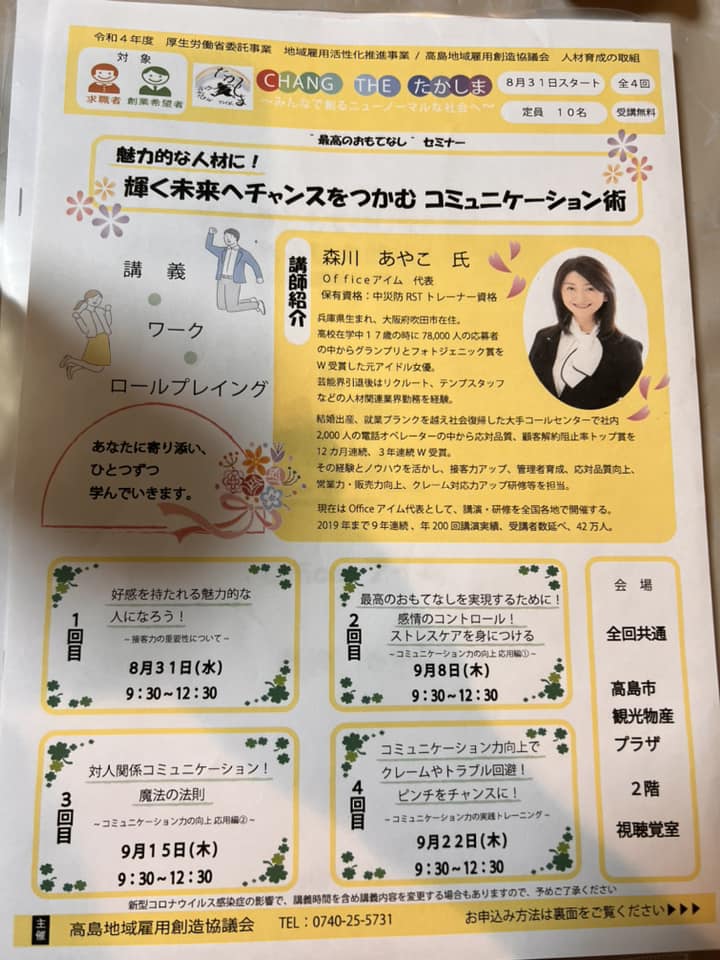 令和４年度　厚生労働省委託事業　地域雇用活性化推進事業 / 高島地域雇用創造協議会　人材育成の取組
対　象
求職者　創業希望者
CHANG THE たかしま
～みんなで創るニューノーマルな社会へ～
８月３１日スタート
全４回
定員　１０名
受講無料
"最高のおもてなし" セミナー
魅力的な人材に！
輝く未来へチャンスをつかむ コミュニケーション術
講　義
ワーク
ロールプレイング
あなたに寄り添い、
ひとつずつ
学んでいきます。
講師紹介
森川　あやこ　氏
Ｏｆｆｉｃｅアイム　代表
保有資格：中災防 RST トレーナー資格
兵庫県生まれ、大阪府吹田市在住。
高校在学中１７歳の時に 78,000 人の応募者
の中からグランプリとフォトジェニック賞を
W 受賞した元アイドル女優。
芸能界引退後はリクルート、テンプスタッフ
などの人材関連業界勤務を経験。
結婚出産、就業ブランクを越え社会復帰した大手コールセンターで社内
2,000 人の電話オペレーターの中から応対品質、顧客解約阻止率トップ賞を
12 カ月連続、３年連続 W 受賞。
その経験とノウハウを活かし、接客力アップ、管理者育成、応対品質向上、
営業力・販売力向上、クレーム対応力アップ研修等を担当。
現在は Office アイム代表として、講演・研修を全国各地で開催する。
2019 年まで９年連続、年 200 回講演実績、受講者数延べ、42 万人。
1回目
好感を持たれる魅力的な
人になろう！
～接客力の重要性について～
8月31日(水)
9：30～12：30
2回目
最高のおもてなしを実現するために！
感情のコントロール！
ストレスケアを身につける
～コミュニケーション力の向上 応用編①～
9月8日(木)
9：30～12：30
3回目
対人関係コミュニケーション！
魔法の法則
～コミュニケーション力の向上 応用編②～
9月15日(木)
9：30～12：30
4回目
コミュニケーション力向上で
クレームやトラブル回避！
ピンチをチャンスに！
～コミュニケーション力の実践トレーニング～
9月22日(木)
9：30～12：30
会　場
全回共通
高島市
観光物産
プラザ
２階
視聴覚室
新型コロナウイルス感染症の影響で、講義時間を含め講義内容を変更する場合もありますので、予めご了承ください
主催
高島地域雇用創造協議会　TEL：0740-25-5731
お申込み方法は裏面をご覧ください▶▶▶